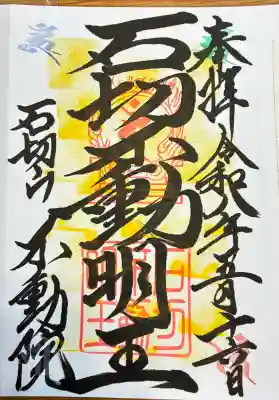 奉拝 令和 年五月
石切不動明王
石切山 不動院